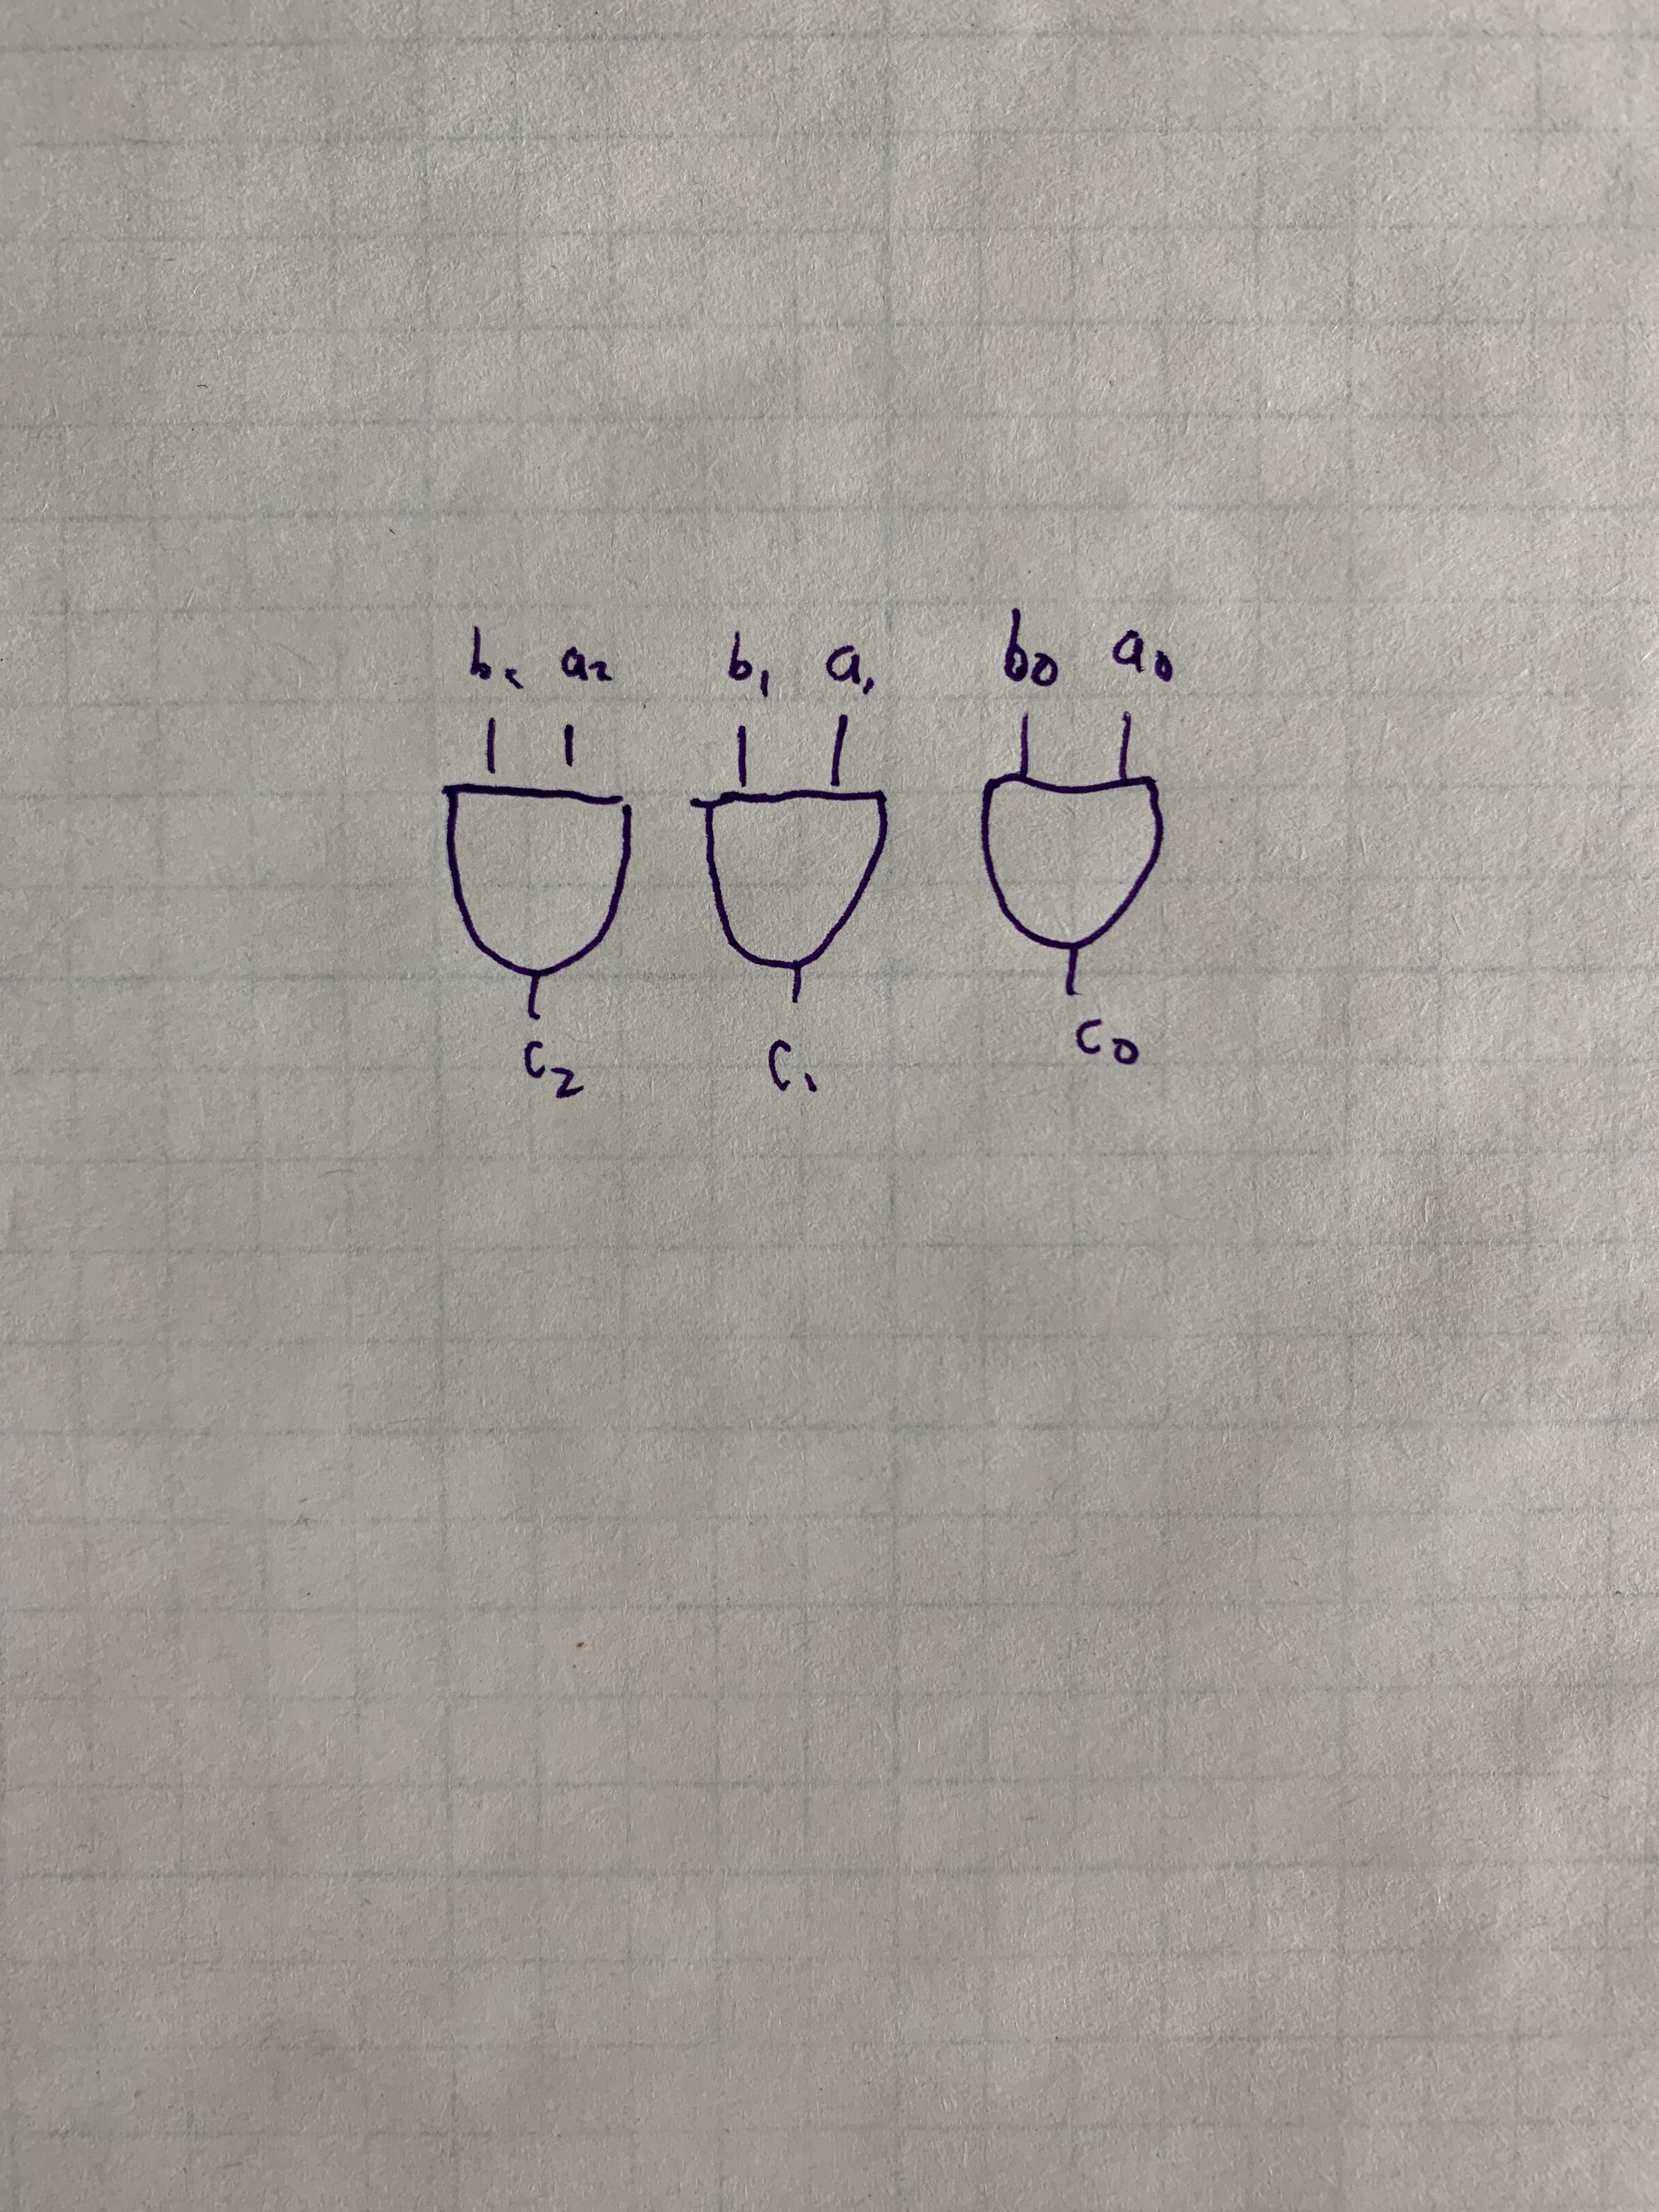 b₂ a₂ b₁ a₁ b₀ a₀
c₂ c₁ c₀